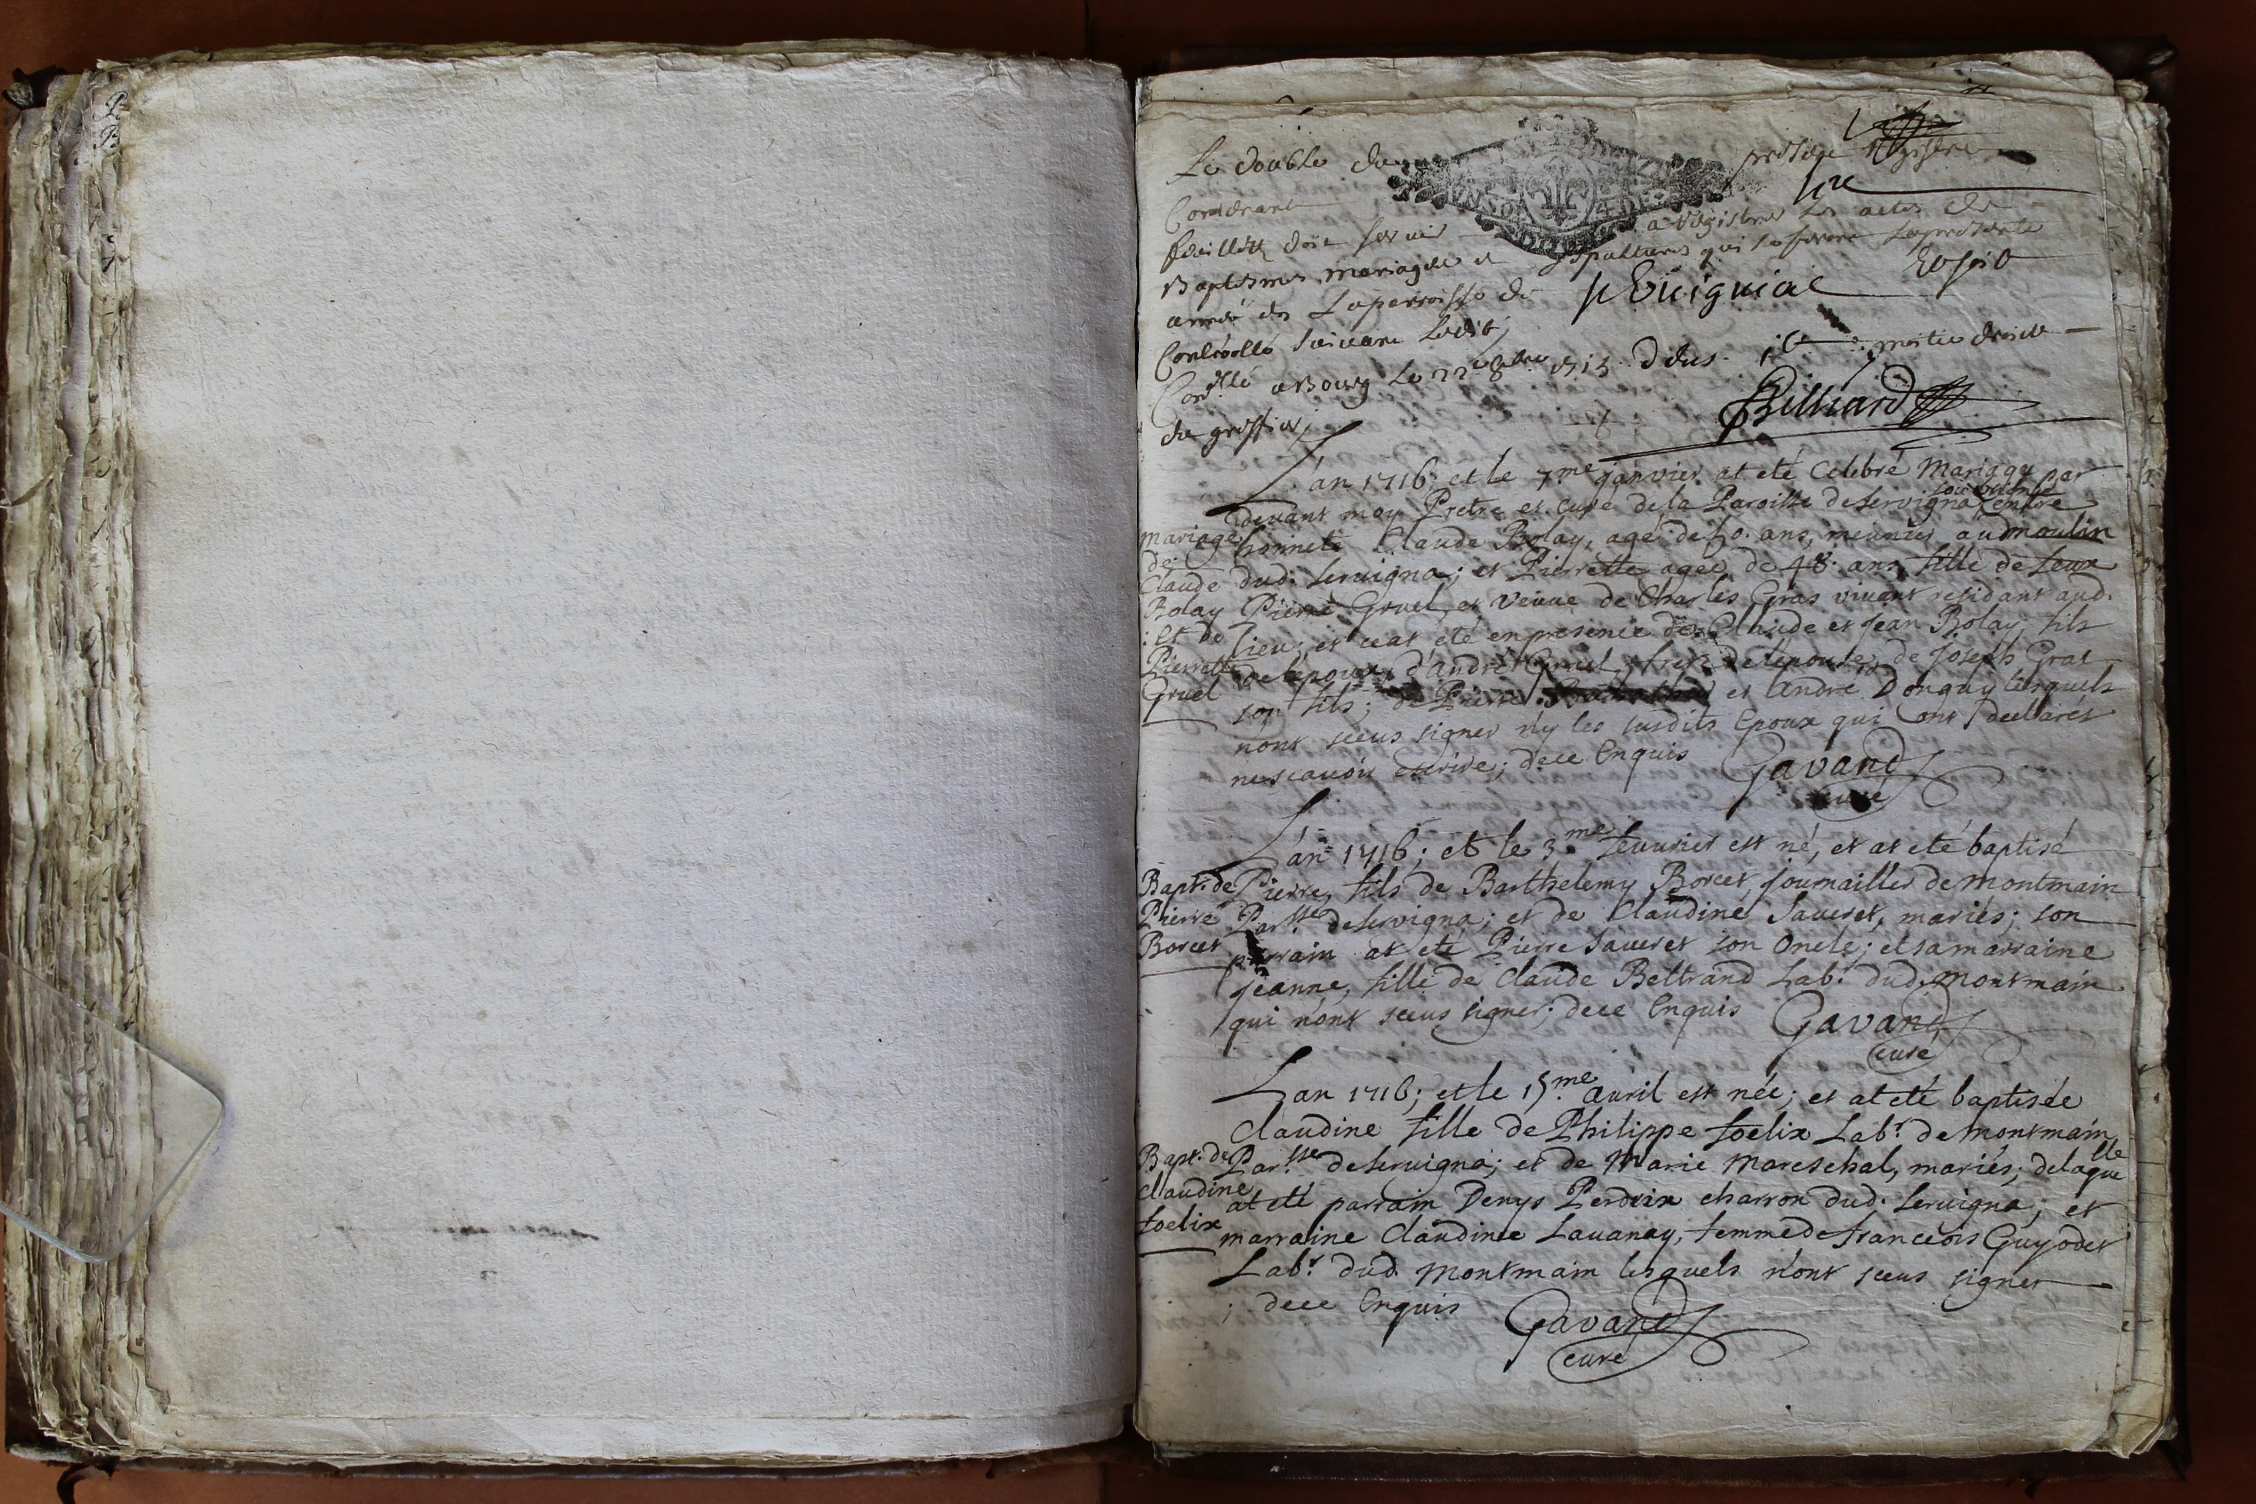 Le double du present registre
Contenant six
feuillets doit servir a registrer les actes de
Baptesmes mariages et sepultures qui se feront la presente
année dez La parroisse de Servignat Et soit
Controllé suivant L'edit;
Con.llé a Bourg Le 22e 8bre 1715. moitie droict
du greffier;
Billiard
L'an 1716; et le 7.me janvier at eté celebré Mariage par
devant moy Pretre et curé de la Paroisse de Servigna entre
honnete Claude Bolay, agé de 50. ans, meunier au moulin
dud. Servigna; et Pierrette agée de 48. ans fille de feux
Pierre Gruel, et veuve de Charles Gras vivant residant aud.
lieu; et ceat eté en presence de Claude et jean Bolay fils
de lepoux; d'andré Gruel frere de lepouse, de joseph Gras
son fils; de Pierre et andre Donguy lesquels
n'ont sceus signer n'y les susdits Epoux qui ont declarés
ne scavoir escrire; dece Enquis Gavand
curé
mariage
de
Claude
Bolay
: Et de
Pierrette
Gruel
L'an 1716; et le 3.me feuvrier est né, et at eté baptisé
Pierre, fils de Barthelemy Borcet journaillier de montmain
Par.sse de Servigna; et de Claudine Saveret, mariés; son
parrain at eté Pierre Saveret son Oncle; et sa marraine
jeanne, fille de Claude Beltrand Lab.r dud. montmain
qui n'ont sceus signer; dece Enquis Gavand
curé
Bapt. de
Pierre
Borcet
L'an 1716; et le 15.me avril est née; et at eté baptisée
Claudine fille de Philippe foelix Lab.r de montmain
Par.sse de Servigna; et de Marie Mareschal, mariés; de laquelle
at eté parrain Denys Perdrix charron dud. Servigna; et
marraine Claudine Lavanay, femme de franceois Guyodet
Lab.r dud. Montmain lesquels n'ont sceus signer
; dece Enquis Gavand
curé
Bapt. de
Claudine
foelix